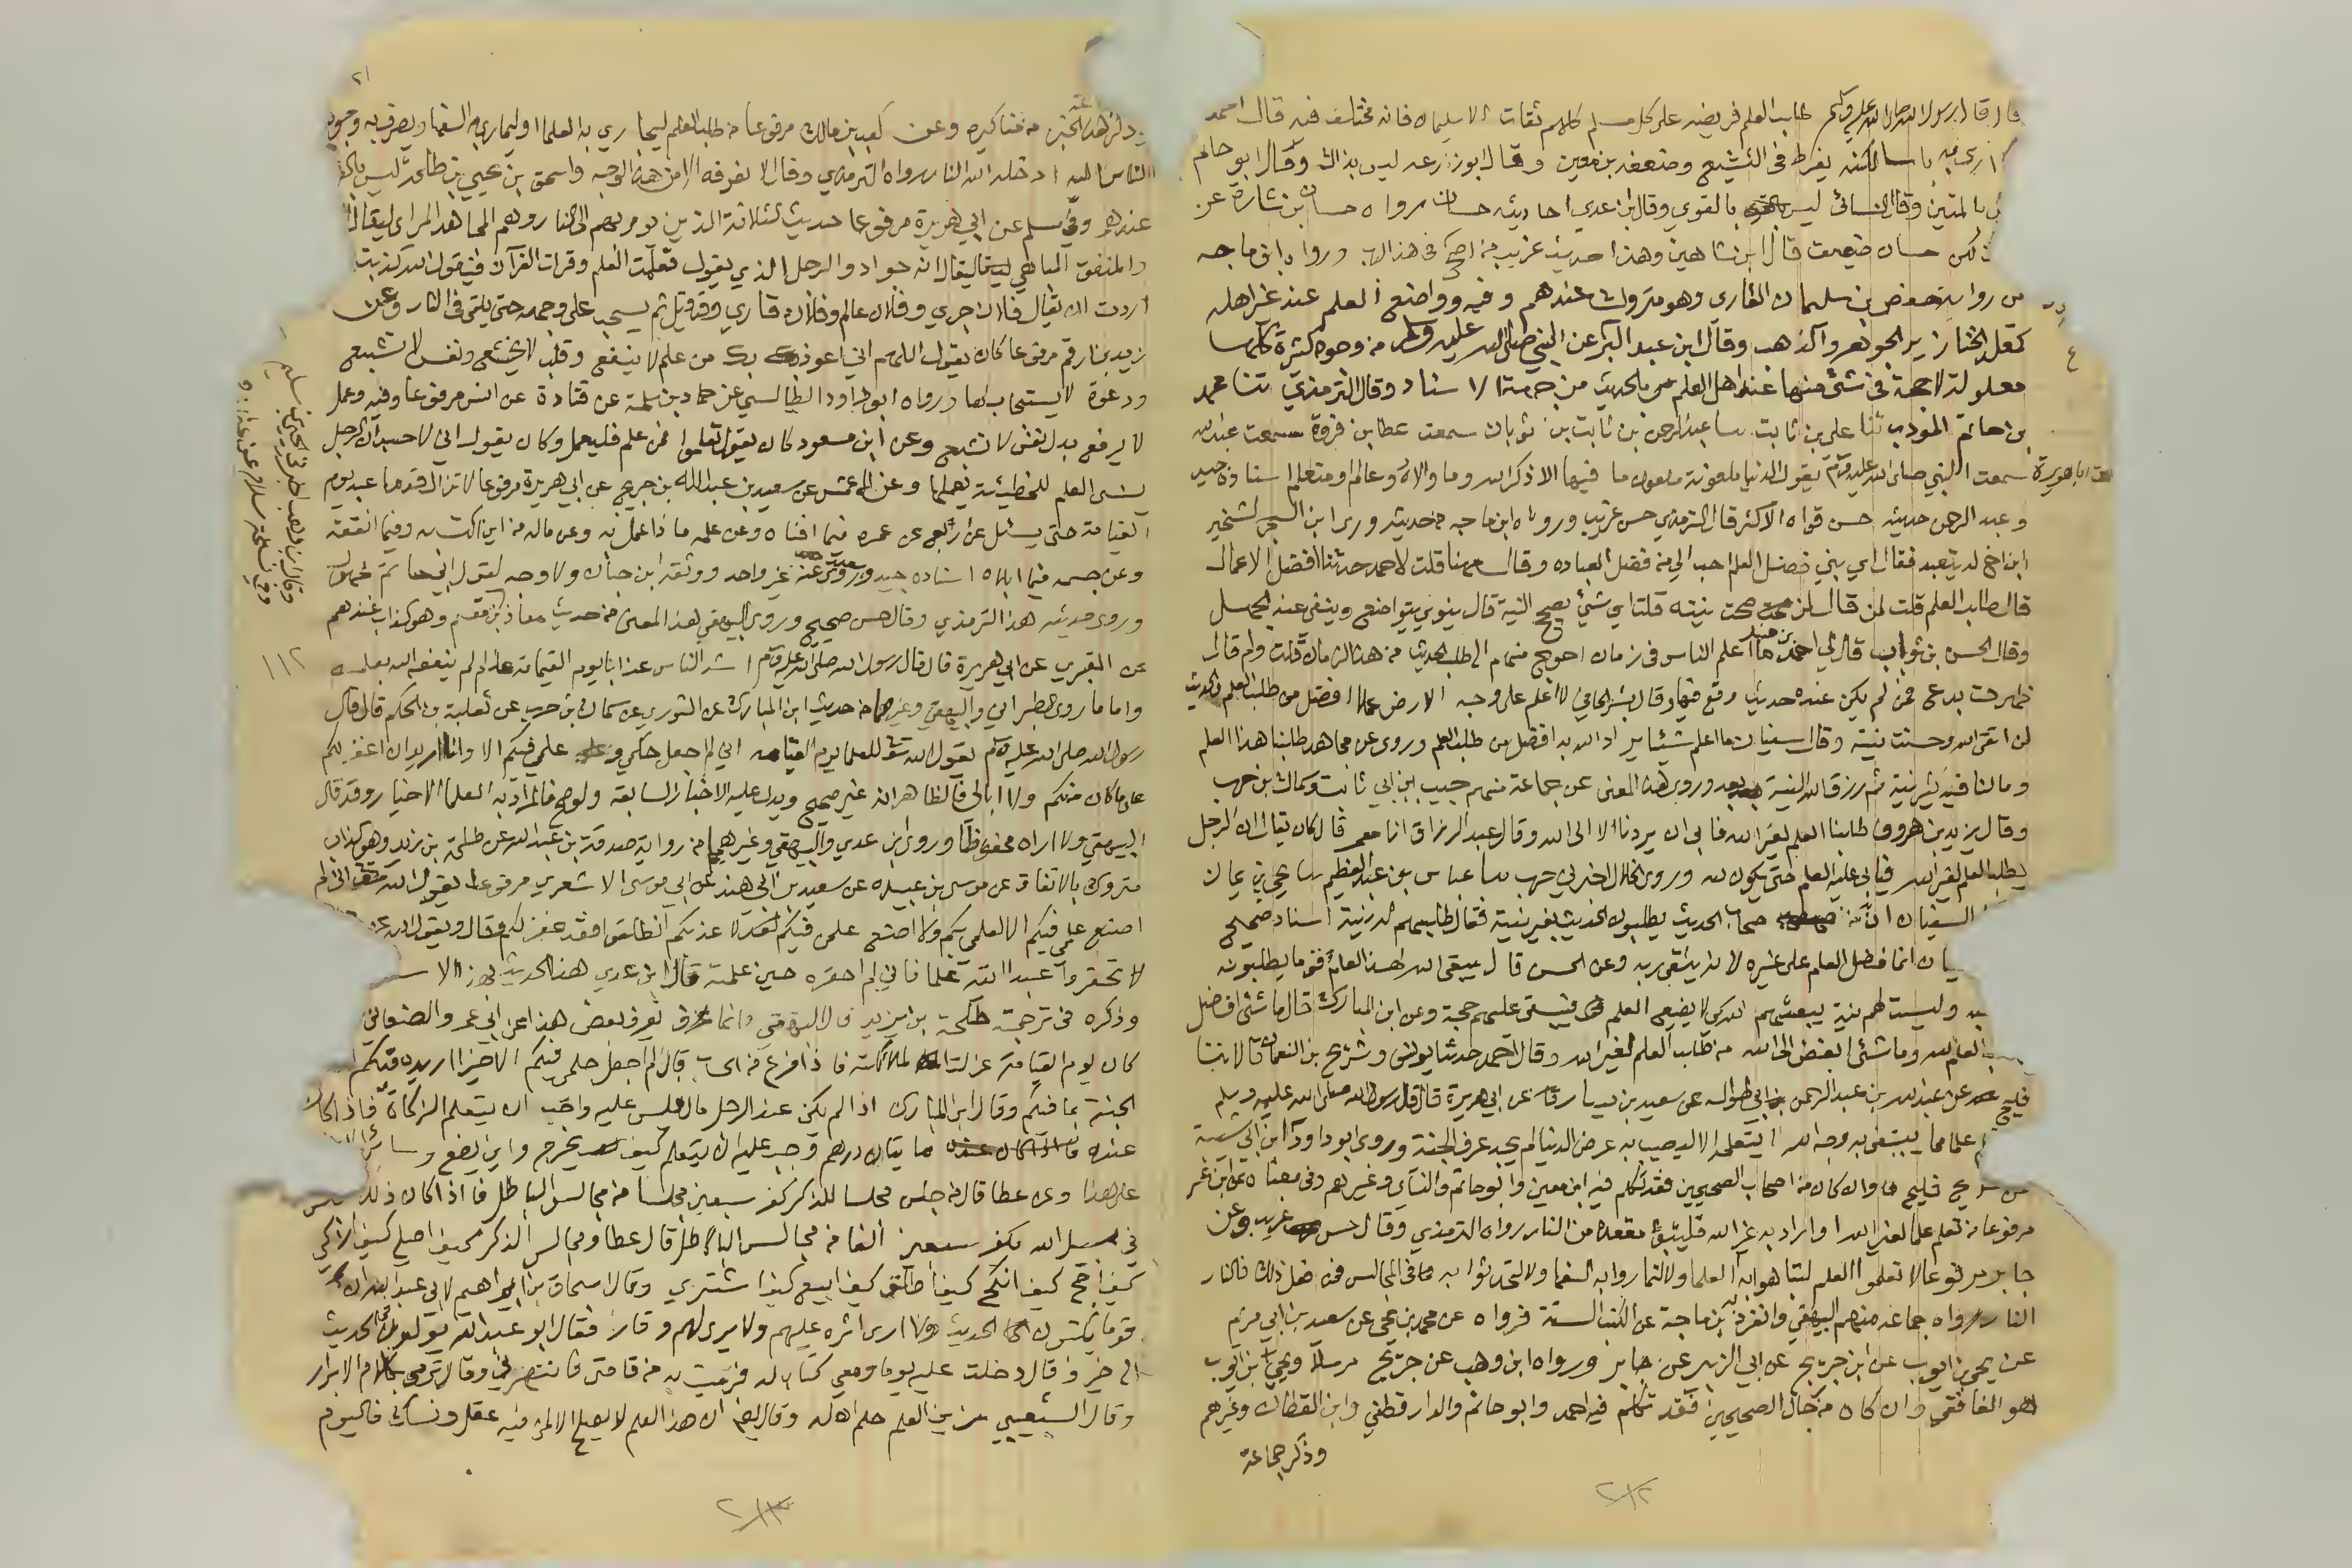 قال قال رسول الله صلى الله عليه وسلم طلب العلم فريضة على كل مسلم كلهم ثقات الا سليمان فانه مختلف فيه قال احمد
لا ارى به باسا لكنه يفرط في التشيع وضعفه بن معين وقال ابو زرعه ليس بذاك وقال ابو حاتم
ليس بالمتين وقال النسائي ليس بالقوي وقال ابن عدي احاديثه حسان ورواه حسان بن سياره عن
لكن حسان ضعيف قال ابن شاهين وهذا حديث غريب من اصح في هذا الباب ورواه ابن ماجه
من رواية حفص بن سليمان القاري وهو متروك عندهم وفيه وواضع العلم عند غير اهله
كمقلد الخنازير الجوهر والذهب وقال ابن عبد البر عن النبي صلى الله عليه وسلم من وجوه كثيرة كلها
معلولة لا حجة في شئ منها عند اهل العلم بالحديث من جهة الاسناد وقال الترمذي ثنا محمد
بن حاتم المؤدب ثنا علي بن ثابت سا عبد الرحمن بن ثابت بن ثوبان سمعت عطا بن قرة سمعت عبد الله
سمعت ابا هريرة سمعت النبي صلى الله عليه وسلم يقول الدنيا ملعونة ملعون ما فيها الا ذكر الله وما والاه وعالم او متعلم اسناده جيد
وعبد الرحمن حديثه حسن قواه الاكثر قال الترمذي حسن غريب ورواه ابن ماجه من حديثه وراى ابن الشخير
ابن اخ له يتعبد فقال اي بني فضل العلم احب الي من فضل العباده وقال مهنا قلت لاحمد حدثنا ما افضل الاعمال
قال طلب العلم قلت لمن قال لمن صحت نيته قلت اي شئ يصحح النية قال ينوي يتواضع وينفي عنه الجهل
وقال الحسن بن ثواب قال لي احمد بن حنبل ما اعلم الناس في زمان احوج منهم الى طلب الحديث من هذا الزمان قلت ولم قال
ظهرت بدع فمن لم يكن عنده حديث وقع فيها وقال بشر الحافي لا اعلم على وجه الارض عملا افضل من طلب العلم والحديث
لمن اتقى الله وحسنت نيته وقال سفيان ما اعلم شيئا يراد الله به افضل من طلب العلم وروي عن مجاهد طلبنا هذا العلم
وما لنا فيه كثير نية ثم رزق الله النية بعد وروي هذا المعنى عن جماعة منهم حبيب بن ابي ثابت وسماك بن حرب
وقال يزيد بن هرون طلبنا العلم لغير الله فابى ان يردنا الا الى الله وقال عبد الرزاق انا معمر قال كان يقال ان الرجل
يطلب العلم لغير الله فيابى عليه العلم حتى يكون لله وروى الخلال اخبرني حرب سا عباس بن عبد العظيم سا يحيى بن يمان
لسفيان ان اصحاب الحديث يطلبون الحديث بغير نية فقال طلبهم له نية اسناد صحيح
سفيان انما فضل العلم على غيره لانه يتقى به وعن الحسن قال يبقى الله لهذا العلم قوما يطلبونه
وليست لهم نية يبعثهم الله كي لا يضيع العلم فيبقى عليهم حجة وعن ابن المبارك قال ما شئ افضل
من طلب العلم لله وما شئ ابغض الى الله من طلب العلم لغير الله وقال احمد حدثنا يونس وشريح بن النعمان قالا ثنا
فليح عن عبد الله بن عبد الرحمن بن ابي طواله عن سعيد بن يسار عن ابي هريرة قال قال رسول الله صلى الله عليه وسلم
علما مما يبتغى به وجه الله لا يتعلمه الا ليصيب به عرض الدنيا لم يجد عرف الجنة وروى ابو داود ابن ابي شيبة
فليح وان كان من اصحاب الصحيحين فقد تكلم فيه ابن معين وابو حاتم والنسائي وغيرهم وفي معناه عن ابن عمر
مرفوعا من تعلم علما لغير الله او اراد به غير الله فليتبوأ مقعده من النار رواه الترمذي وقال حسن غريب وعن
جابر مرفوعا لا تعلموا العلم لتباهوا به العلما ولا لتماروا به السفها ولا لتحدثوا به في المجالس فمن فعل ذلك فالنار
النار رواه جماعه منهم البيهقي وانفرد به بن ماجة عن الكتب الستة فرواه عن محمد بن يحيى عن سعيد بن ابي مريم
عن يحيى بن ايوب عن ابن جريج عن ابي الزبير عن جابر ورواه ابن وهب عن جريج مرسلا ويحيى بن ايوب
هو الغافقي وان كان من رجال الصحيحين فقد تكلم فيه احمد وابو حاتم والدارقطني وابن القطان وغيرهم
وذكر جماعة
٢١٢
٢١
هذا الخبر من مناكيره وعن كعب بن مالك مرفوعا من طلب العلم ليجاري به العلما او ليماري به السفها ويصرف به وجوه
الناس اليه ادخله الله النار رواه الترمذي وقال لا نعرفه الا من هذا الوجه واسحق بن يحيى بن طلحة ليس بالقوي
عندهم وفي مسلم عن ابي هريرة مرفوعا حديث الثلاثة الذين يومر بهم الى النار وهم المجاهد المراي ليقال
والمنفق المباهي ليقال انه جواد والرجل الذي يقول تعلمت العلم وقرات القرآن فيقول الله كذبت
اردت ان يقال فلان جري وفلان عالم وفلان قاري وقد قيل ثم يسحب على وجهه حتى يلقى في النار وعن
زيد بن ارقم مرفوعا كان يقول اللهم اني اعوذ بك من علم لا ينفع وقلب لا يخشع ونفس لا تشبع
ودعوة لا يستجاب لها ورواه ابو داود الطيالسي عن حماد بن سلمة عن قتادة عن انس مرفوعا وفيه وعمل
لا يرفع بدل نفس لا تشبع وعن ابن مسعود كان يقول تعلموا فمن علم فليعمل وكان يقول اني لاحسب ان الرجل
ينسى العلم للخطيئة يعملها وعن الاعمش عن سعيد بن عبد الله بن جريج عن ابي هريرة مرفوعا لا تزال قدما عبد يوم
القيامة حتى يسئل عن اربع عن عمره فيما افناه وعن علمه ماذا عمل به وعن ماله من اين اكتسبه وفيما انفقه
وعن جسمه فيما ابلاه اسناده جيد وسعيد روى عنه غير واحد ووثقه ابن حبان ولا وجه لقول ابي حاتم مجهول
وروى حديثه هذا الترمذي وقال حسن صحيح وروى البيهقي هذا المعنى من حديث معاذ بن مقسم وهو كذاب عندهم
عن المقبري عن ابي هريرة قال قال رسول الله صلى الله عليه وسلم اشد الناس عذابا يوم القيامة عالم لم ينفعه الله بعلمه
واما ما روى الطبراني والبيهقي وغيرهما من حديث ابن المبارك عن الثوري عن سماك بن حرب عن ثعلبة بن الحكم قال قال
رسول الله صلى الله عليه وسلم يقول الله تعالى للعلما يوم القيامه اني لم اجعل حكمي وعلمي فيكم الا وانا اريد ان اغفر لكم
على ما كان منكم ولا ابالي فالظاهر انه غير صحيح ويدل عليه الاخبار السابقة ولو صح فالمراد به العلما الاخيار وقد قال
البيهقي ولا اراه محفوظا وروى ابن عدي والبيهقي وغيرهما من رواية صدقة بن عبد الله عن طلحة بن زيد وهو كذاب
متروك بالاتفاق عن موسى بن عبيدة عن سعيد بن ابي هند عن ابي موسى الاشعري مرفوعا يقول الله تعالى اني لم
اصنع علمي فيكم الا لعلمي بكم ولا اضع علمي فيكم لا عذبكم انطلقوا فقد غفر لكم وقال ويقول الله
لا تحقروا عبدا اتيته علما فاني لم احقره حين علمته قال ابن عدي هذا الحديث بهذا الاسـ
وذكره في ترجمة طلحة بن يزيد قال البيهقي وانما نعرف بعض هذا عن ابي عمرو الصنعاني
كان يوم القيامة عزلت الملائكة فاذا فرغ من الحساب قال لم اجعل حلمي فيكم الا خيرا اريده فيكم
الجنة بما فيكم وقال ابن المبارك اذا لم يكن عند الرجل مال فليس عليه واجب ان يتعلم الزكاة فاذا كان
عنده مايتان درهم وجب عليه ان يتعلم كيف يخرج واين يضع وسائر
على هذا وعن عطا قال من جلس مجلسا للذكر كفر سبعين مجلسا من مجالس الباطل فاذا كان ذلك
في سبيل الله يكفر سبعين الفا من مجالس الباطل قال عطا ومجالس الذكر كيف اصلي كيف ازكي
كيف احج كيف انكح كيف اطلق كيف ابيع كيف اشتري وقال اسحاق بن ابراهيم لابي عبد الله ان
قوما يكتبون الحديث ولا ارى اثره عليهم ولا يرى لهم وقار فقال ابو عبد الله يؤولون في الحديث
الى خير وقال دخلت عليه يوما ومعي كتاب له فرميت به من قامتي فانتهرني وقال ترمي بكلام الابرار
وقال الشعبي زين العلم حلم اهله وقال ايضا ان هذا العلم لا يصلح الا لمن فيه عقل ونسك فاليوم
١١٢
٢١٣